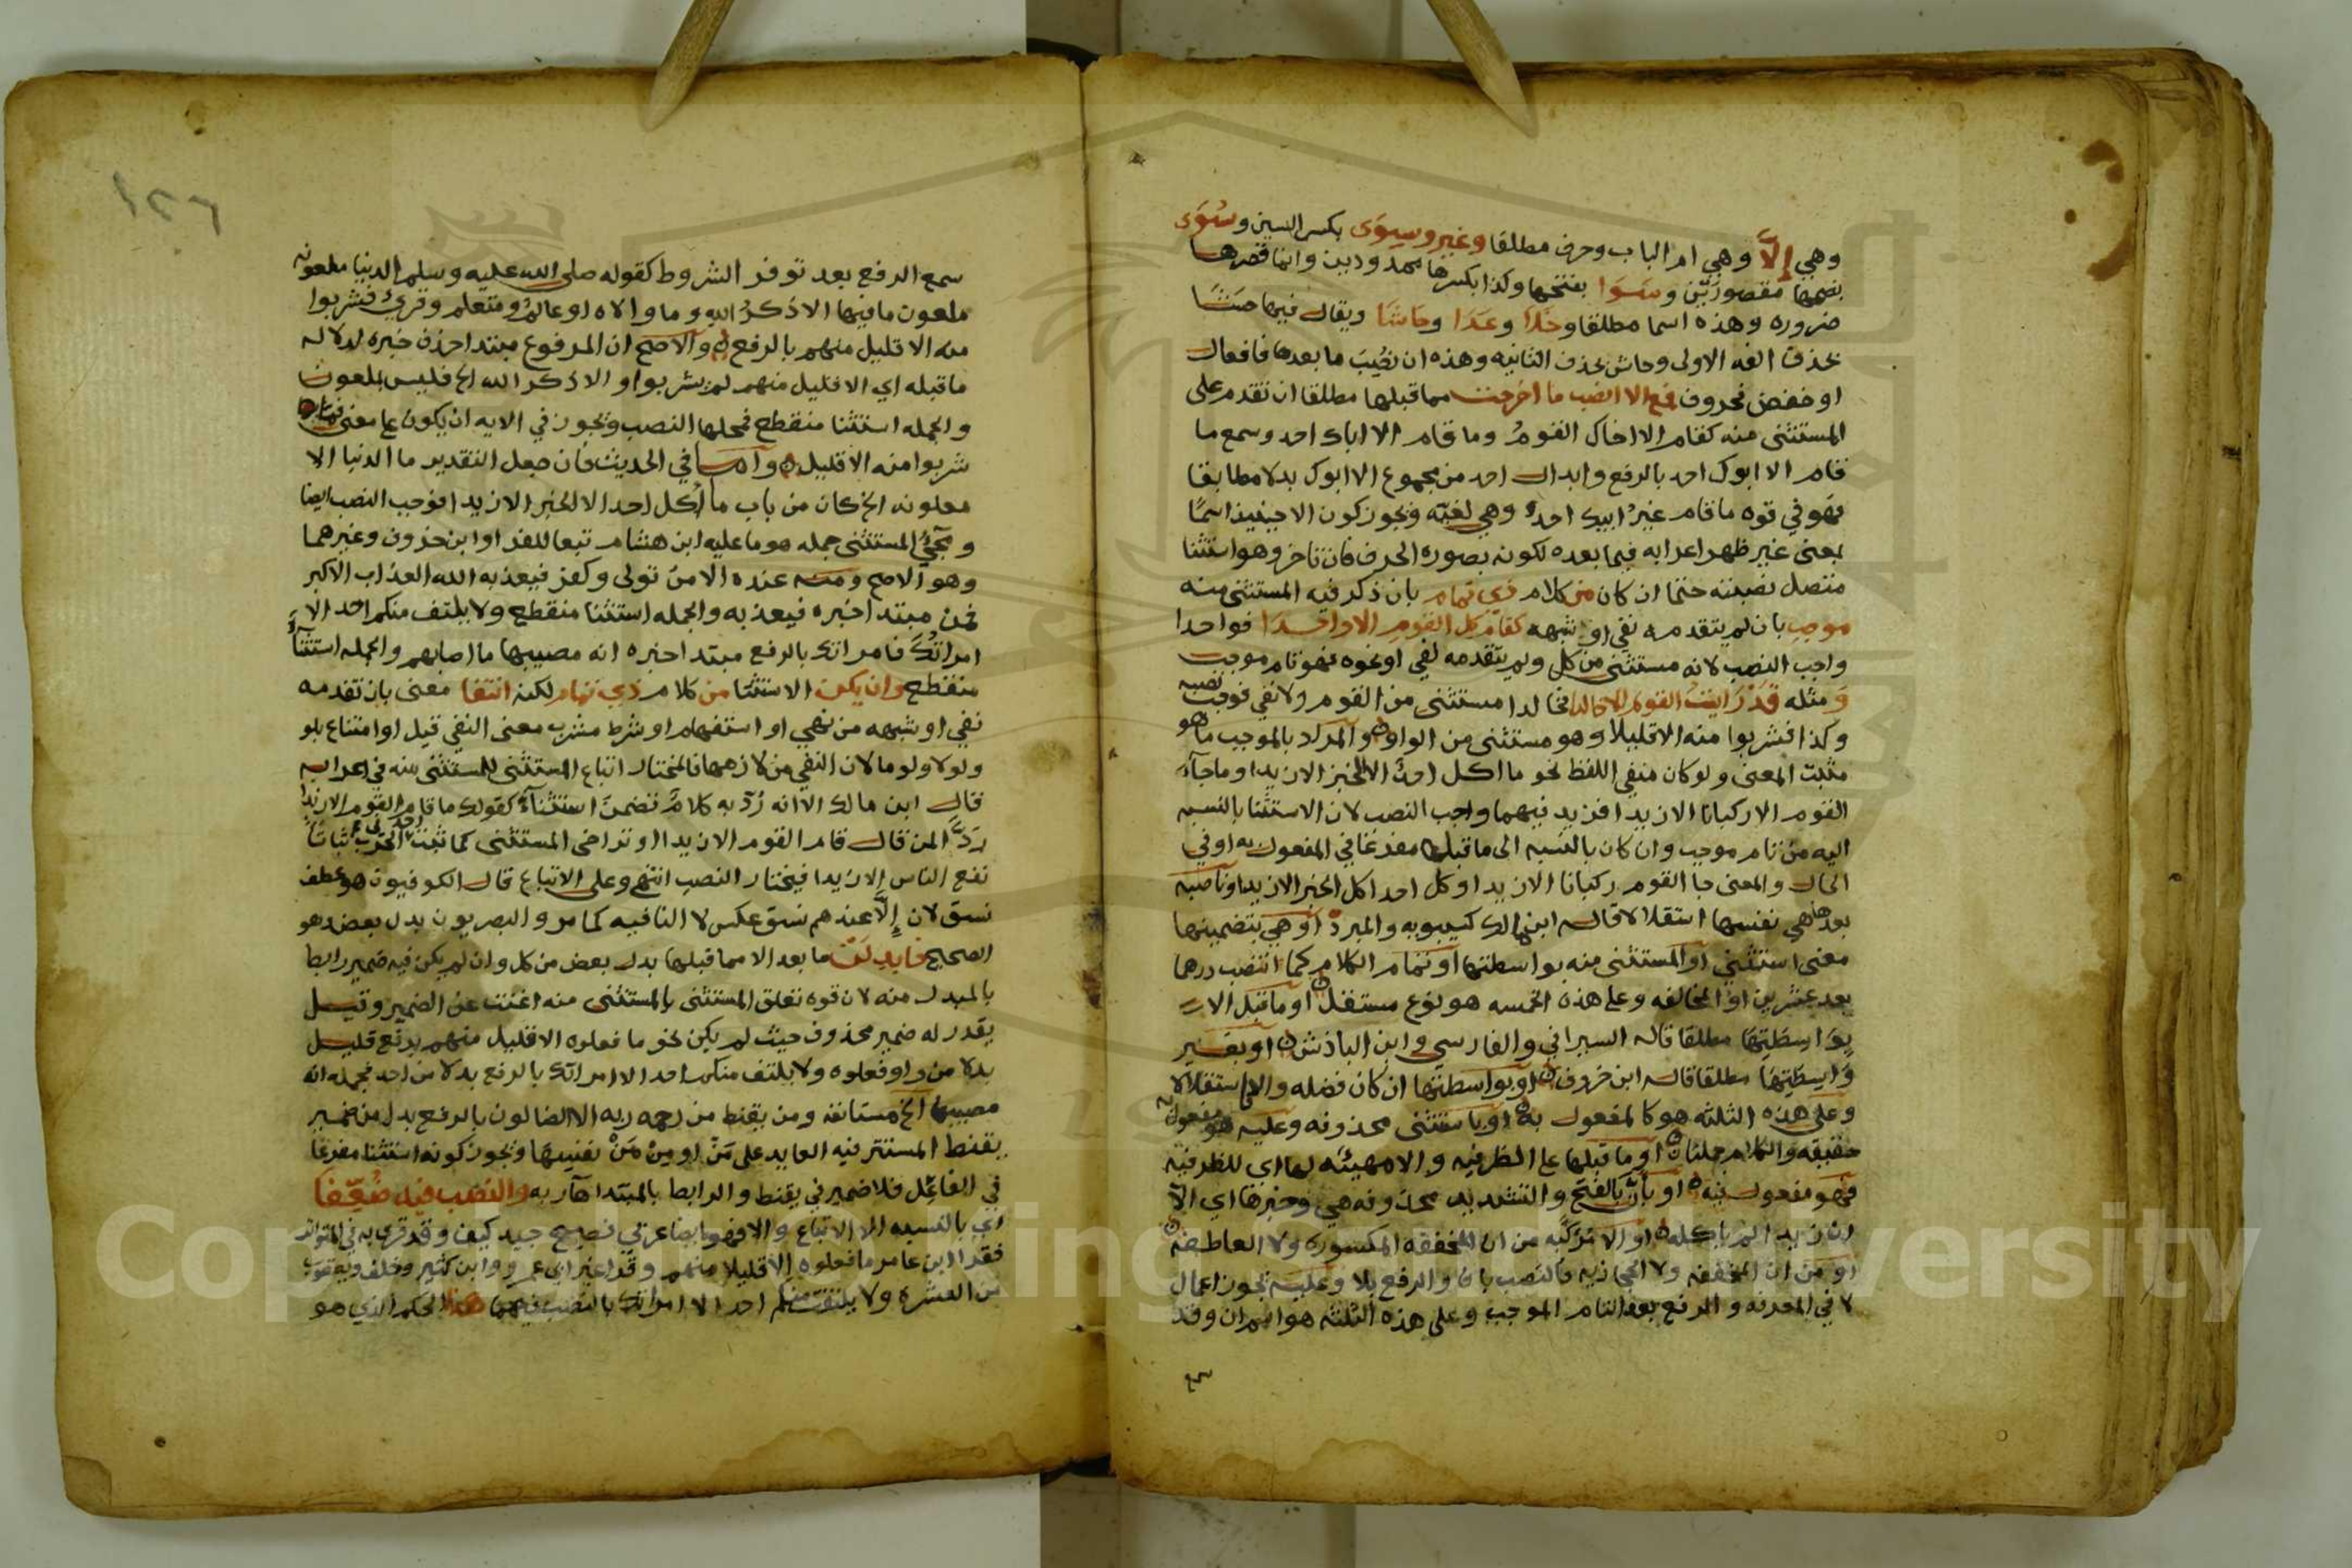 وهي إلّا وهي ام الباب وحرف مطلقا وغير وسِوَى بكسر السين وسُوَى
بضمها مقصورَيْن وسَوَا بفتحها وكذا بكسرها ممدودين وانما قصرها
ضروره وهذه اسما مطلقا وخَلا وعَدَا وحَاشَا ويقال فيها حشا
بحذف الفه الاولى وحاش بحذف الثانيه وهذه ان نصب ما بعدها فافعال
او خفض فحروف فمع الا انصب ما اخرجت مما قبلها مطلقا ان تقدم على
المستثنى منه كقام الا اخاك القومُ وما قام الا اباك احد وسمع ما
قام الا ابوك احد بالرفع وابدال احد من مجموع الا ابوك بدلا مطابقا
فهو في قوه ما قام غيرُ ابيك احد وهي لغيّه ويجوز كون الا حينيذ اسمًا
بمعنى غير ظهر اعرابه فيما بعده لكونه بصوره الحرف فان تاخر وهو استثنا
متصل نصبته حتما ان كان من كلام ذي تمام بان ذكر فيه المستثنى منه
موجب بان لم يتقدمه نفي او شبهه كقام كل القوم الا واحدا فواحدا
واجب النصب لانه مستثنى من كل ولم يتقدمه نفي او نحوه فهو تام موجب
ومثله قد رايتُ القوم الا خالدا فخالدا مستثنى من القوم ولا نفي فوجب نصبه
وكذا فشربوا منه الا قليلا وهو مستثنى من الواو والمراد بالموجب ما هو
مثبت المعنى ولو كان منفي اللفظ نحو ما اكل احدٌ الا الخبز الا زيدا وما جآء
القوم الا ركبانا الا زيدا فزيد فيهما واجب النصب لان الاستثنا بالنسبه
اليه من تام موجب وان كان بالنسبه الى ما قبلها مفرغا في المفعول به او في
الحال والمعنى جا القوم ركبانا الا زيدا وكل احد اكل الخبز الا زيدا وناصبه
بعدها هي نفسها استقلالا قاله ابن مالك كسيبويه والمبرد او هي بتضمينها
معنى استثني او المستثنى منه بواسطتها او تمام الكلام كما انتصب درهما
بعد عشرين او المخالفه وعلى هذه الخمسه هو نوع مستقل او ما قبل الا
بوَاسِطَتِهَا مطلقا قاله السيرافي والفارسي وابن الباذش او بغير
وَاسِطَتِهَا مطلقا قاله ابن خروف او بواسطتها ان كان فضله والا استقلالا
وعلى هذه الثلثه هو كالمفعول به او باستثنى محذوفه وعليه هو مفعول به
حقيقه والكلام جملتان او ما قبلها على الظرفيه والا مهيئه لها اي للظرفيه
فهو مفعول فيه او بأنَّ بالفتح والتشديد محذوفه هي وخبرها اي الّا
ان زيدا لم ياكله او الا مركبه من ان المخففه المكسوره ولا العاطفه
او من ان المخففه ولا الحجازيه فالنصب بان والرفع بلا وعليه يجوز اعمال
لا في المعرفه والرفع بعد التام الموجب وعلى هذه الثلثه هو اسم ان وقد
سمع
١٢٦
سمع الرفع بعد توفر الشروط كقوله صلى الله عليه وسلم الدنيا ملعونه
ملعون ما فيها الا ذكرُ الله وما والاه او عالمٌ ومتعلم وقرئ فشربوا
منه الا قليل منهم بالرفع والاصح ان المرفوع مبتدا حذف خبره لدلاله
ما قبله اي الا قليل منهم لم يشربوا او الا ذكر الله الخ فليس بملعون
والجمله استثنا منقطع فمحلها النصب ويجوز في الايه ان يكون على معنى فما
شربوا منه الا قليل واما في الحديث فان جعل التقدير ما الدنيا الا
معلونه الخ كان من باب ما أكل احد الا الخبز الا زيدا فوجب النصب ايضا
ومجيُ المستثنى جمله هو ما عليه ابن هشام تبعا للفرا وابن خروف وغيرهما
وهو الاصح ومنه عنده الا من تولى وكفر فيعذبه الله العذاب الاكبر
فمن مبتدا خبره فيعذبه والجمله استثنا منقطع ولا يلتفت منكم احد الا
امراتُك فامراتك بالرفع مبتدا خبره انه مصيبها ما اصابهم والجمله استثنآء
منقطع وان يكن الاستثنا من كلام ذي تمام لكنه انتفا معنى بان تقدمه
نفي او شبهه من نهي او استفهام او شرط مشرب معنى النفي قيل او امتناع بلو
ولولا ولوما لان النفي من لازمها فالمختار اتباع المستثنى للمستثنى منه في اعرابه
قال ابن مالك الا انه رُدّ به كلامٌ تضمنَ استثنآءً كقولك ما قام القوم الا زيدا
ردّا لمن قال قام القوم الا زيدا او تراخى المستثنى كما ثبت احد في الحرب ثباتًا
نفع الناس الا زيدا فيختار النصب انتهى وعلى الاتباع قال الكوفيون هو عطف
نسق لان إلّا عندهم نسق عكس لا النافيه كما مر والبصريون بدل بعض وهو
الصحيح فابدِلَنْ ما بعد الا مما قبلها بدل بعض من كل وان لم يكن فيه ضمير رابط
بالمبدل منه لان قوه تعلق المستثنى بالمستثنى منه اغنت عن الضمير وقيل
يقدر له ضمير محذوف حيث لم يكن نحو ما فعلوه الا قليل منهم برفع قليل
بدلا من واو فعلوه ولا يلتفت منكم احد الا امراتك بالرفع بدلا من احد فجمله انه
مصيبها الخ مستانفه ومن يقنط من رحمه ربه الا الضالون بالرفع بدل من ضمير
يقنط المستتر فيه العايد على مَنْ او مِنْ مَنْ نفسِهَا ويجوز كونه استثنا مفرغا
في الفاعل فلا ضمير في يقنط والرابط بالمبتدا هآء ربه والنصب فيه ضُعِّفَا
اي بالنسبه الى الاتباع والا فهو ايضا عربي فصيح جيد كيف وقد قرئ به في المتواتر
فقرا ابن عامر ما فعلوه إلا قليلا منهم وقرا غير ابي عمرو وابن كثير وخلف ويعقوب
من العشره ولا يلتفت منكم احد الا امراتك بالنصب فيهما هذا الحكم الذي هو
Copyright © King Saud University